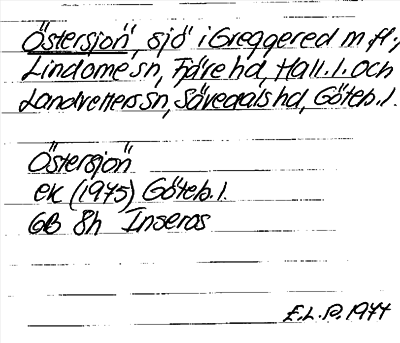 Östersjön, sjö i Greggered m.fl.,
Lindome sn, Fjäre hd, Hall. l. och
Landvetters sn, Sävedals hd, Göteb. l.
Östersjön
ek (1975) Göteb. l.
6B 8h Inseros
E.L.P. 1977